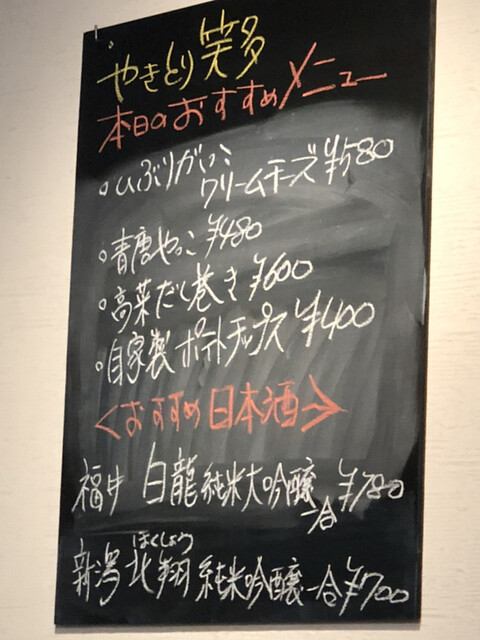 やきとり笑多
本日のおすすめメニュー
・いぶりがっこ
クリームチーズ ¥580
・青唐やっこ ¥480
・高菜だし巻き ¥600
・自家製ポテトチップス ¥400
<おすすめ日本酒>
福井 白龍 純米大吟醸
一合 ¥780
ほくしょう
新潟 北翔 純米吟醸 一合 ¥700